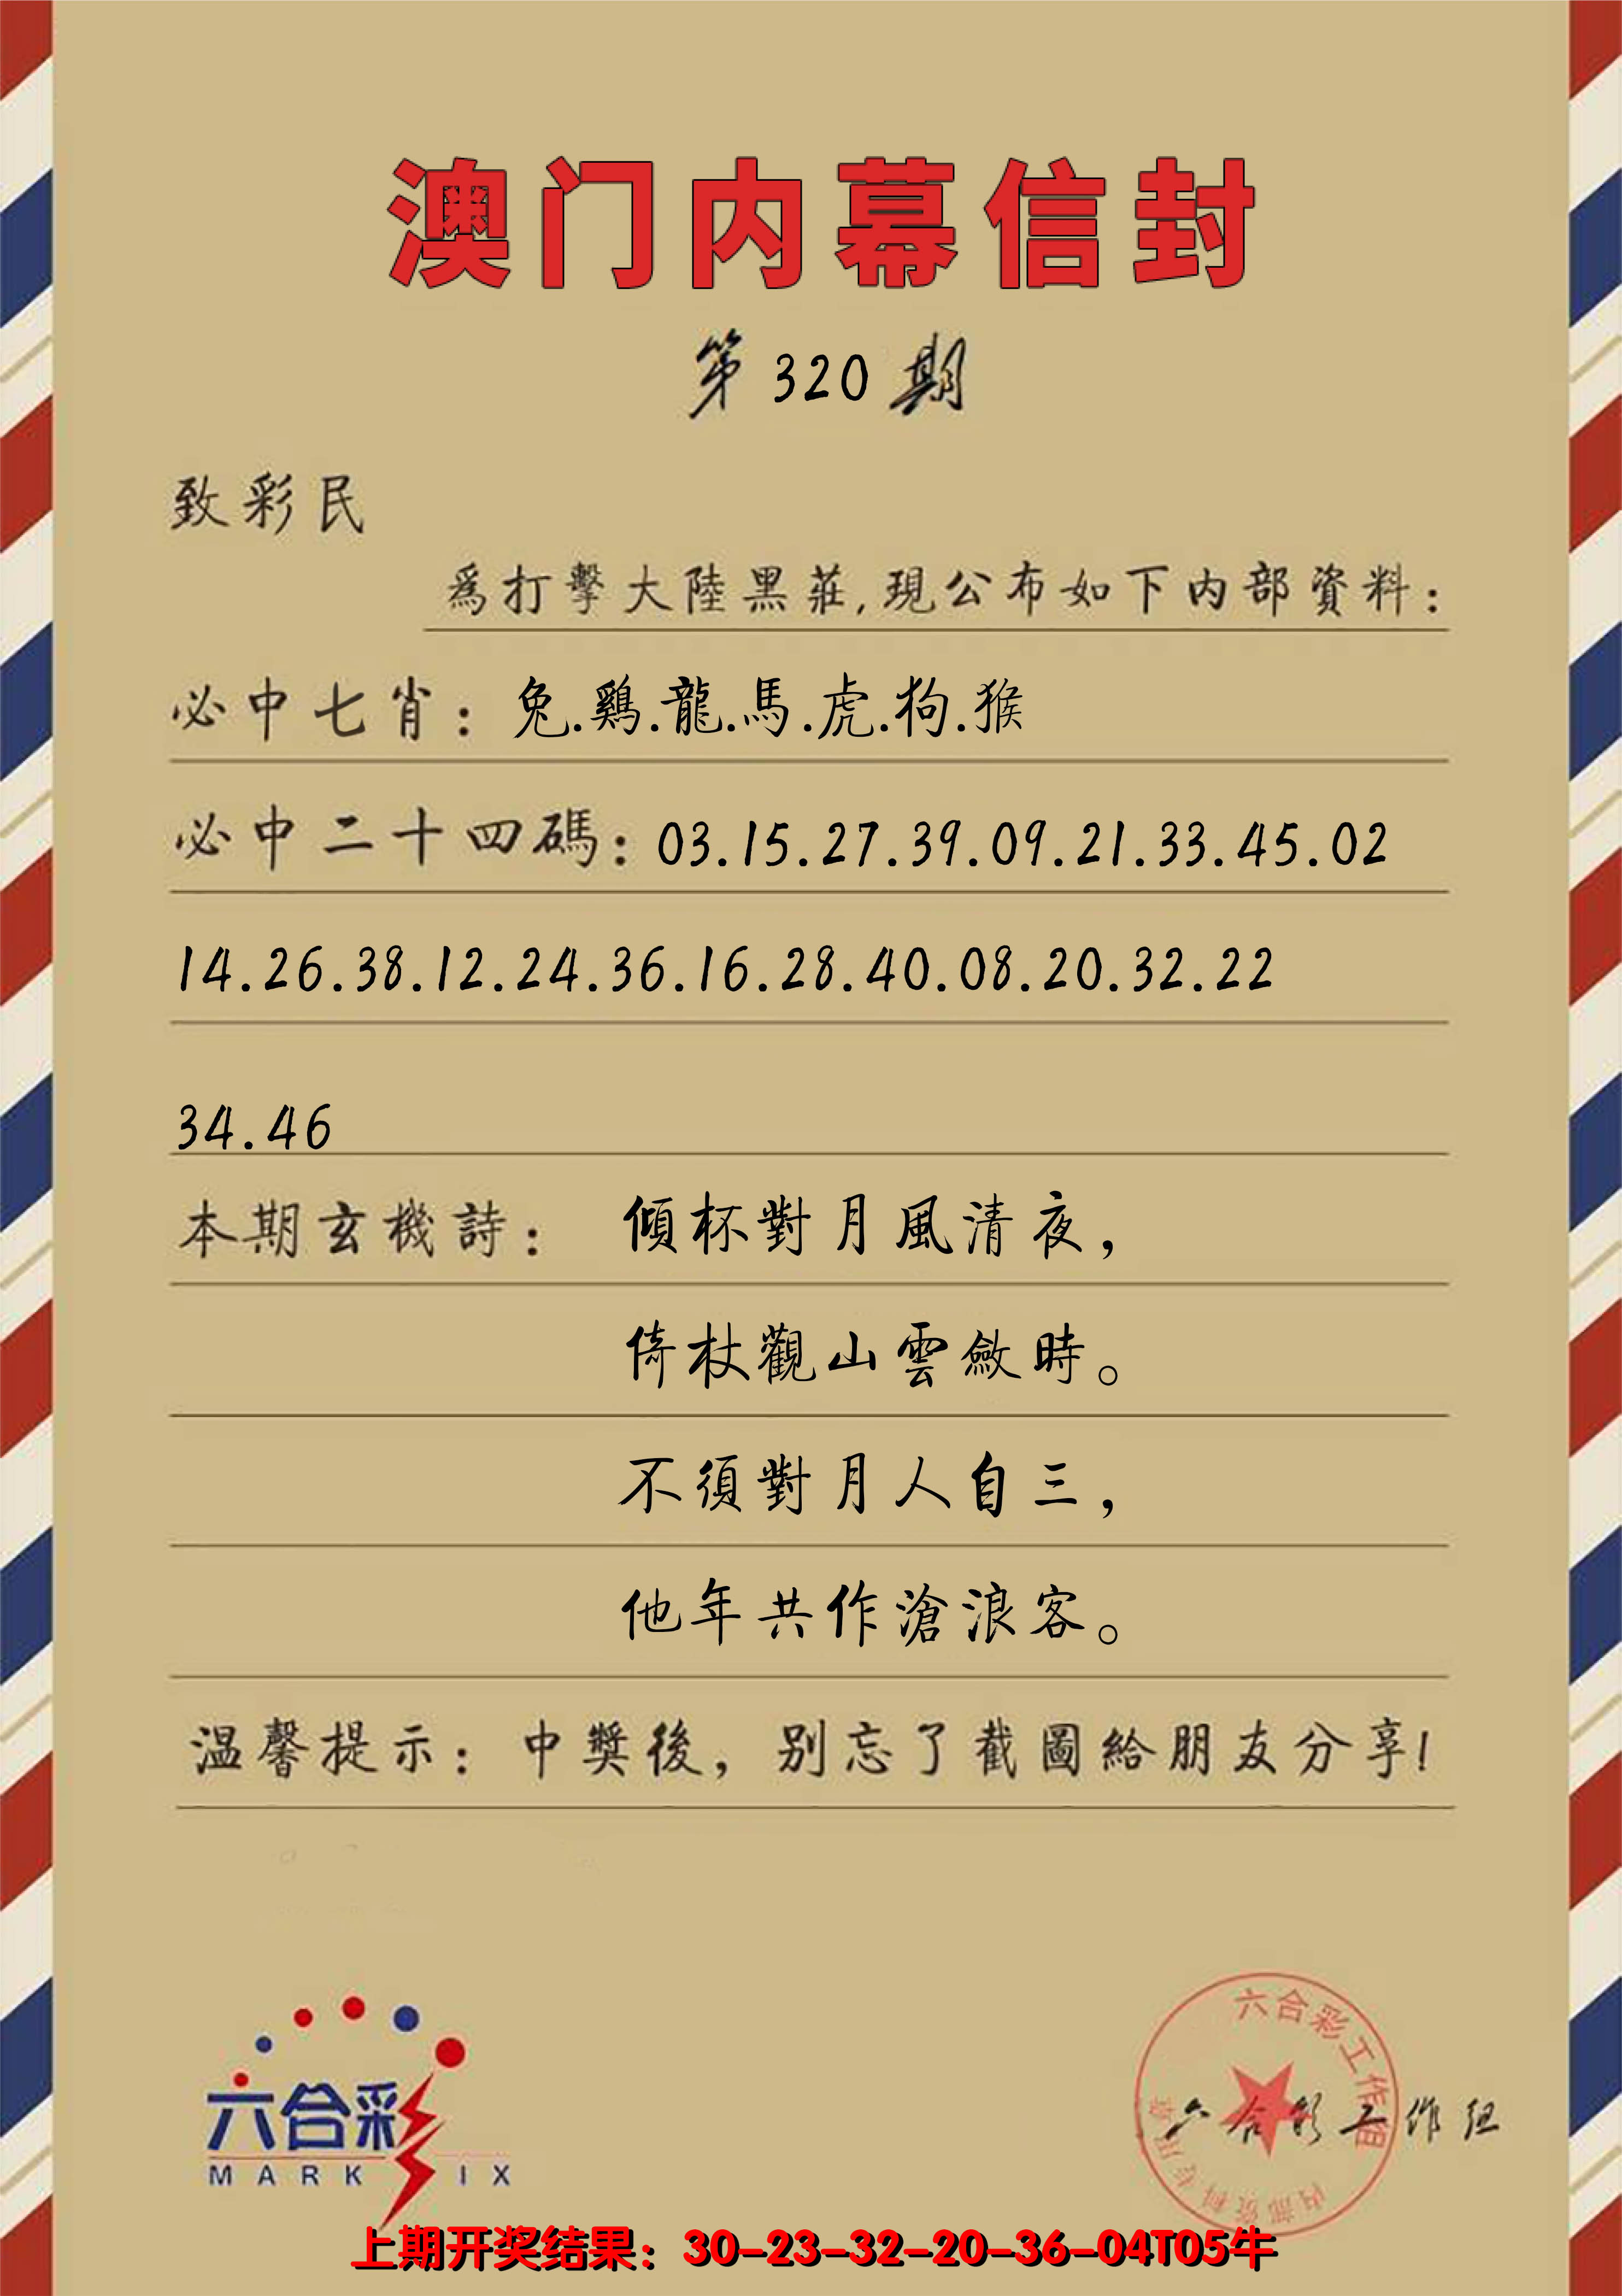 澳门内幕信封
第320期
致彩民
爲打擊大陸黑莊,現公布如下内部資料:
必中七肖: 兔.鷄.龍.馬.虎.狗.猴
必中二十四碼: 03.15.27.39.09.21.33.45.02
14.26.38.12.24.36.16.28.40.08.20.32.22
34.46
本期玄機詩: 傾杯對月風清夜,
倚杖觀山雲斂時。
不須對月人自三,
他年共作滄浪客。
温馨提示: 中獎後, 别忘了截圖給朋友分享!
六合彩
MARK IX
六合彩工作组
内部资料专用章
六合彩工作组
上期开奖结果: 30-23-32-20-36-04T05牛